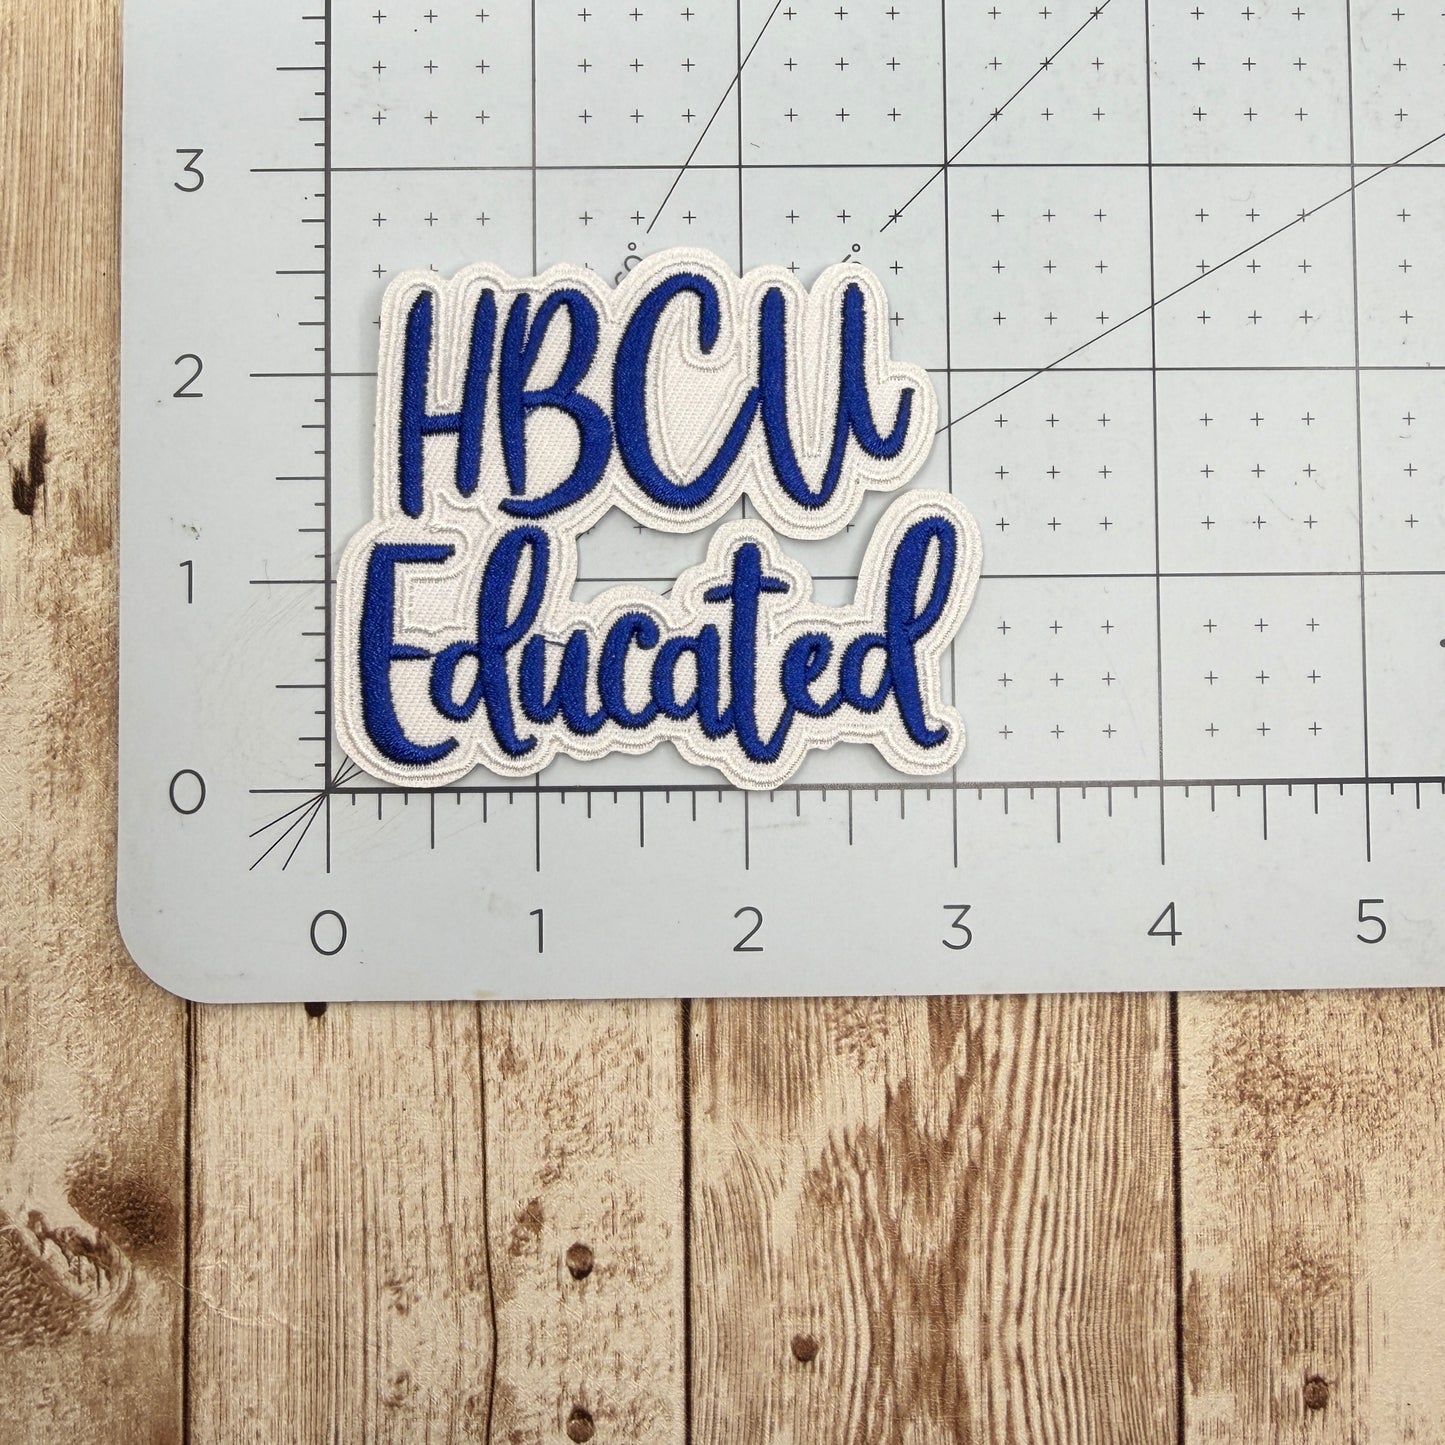 3
2
1
0
HBCU
Educated
0 1 2 3 4 5